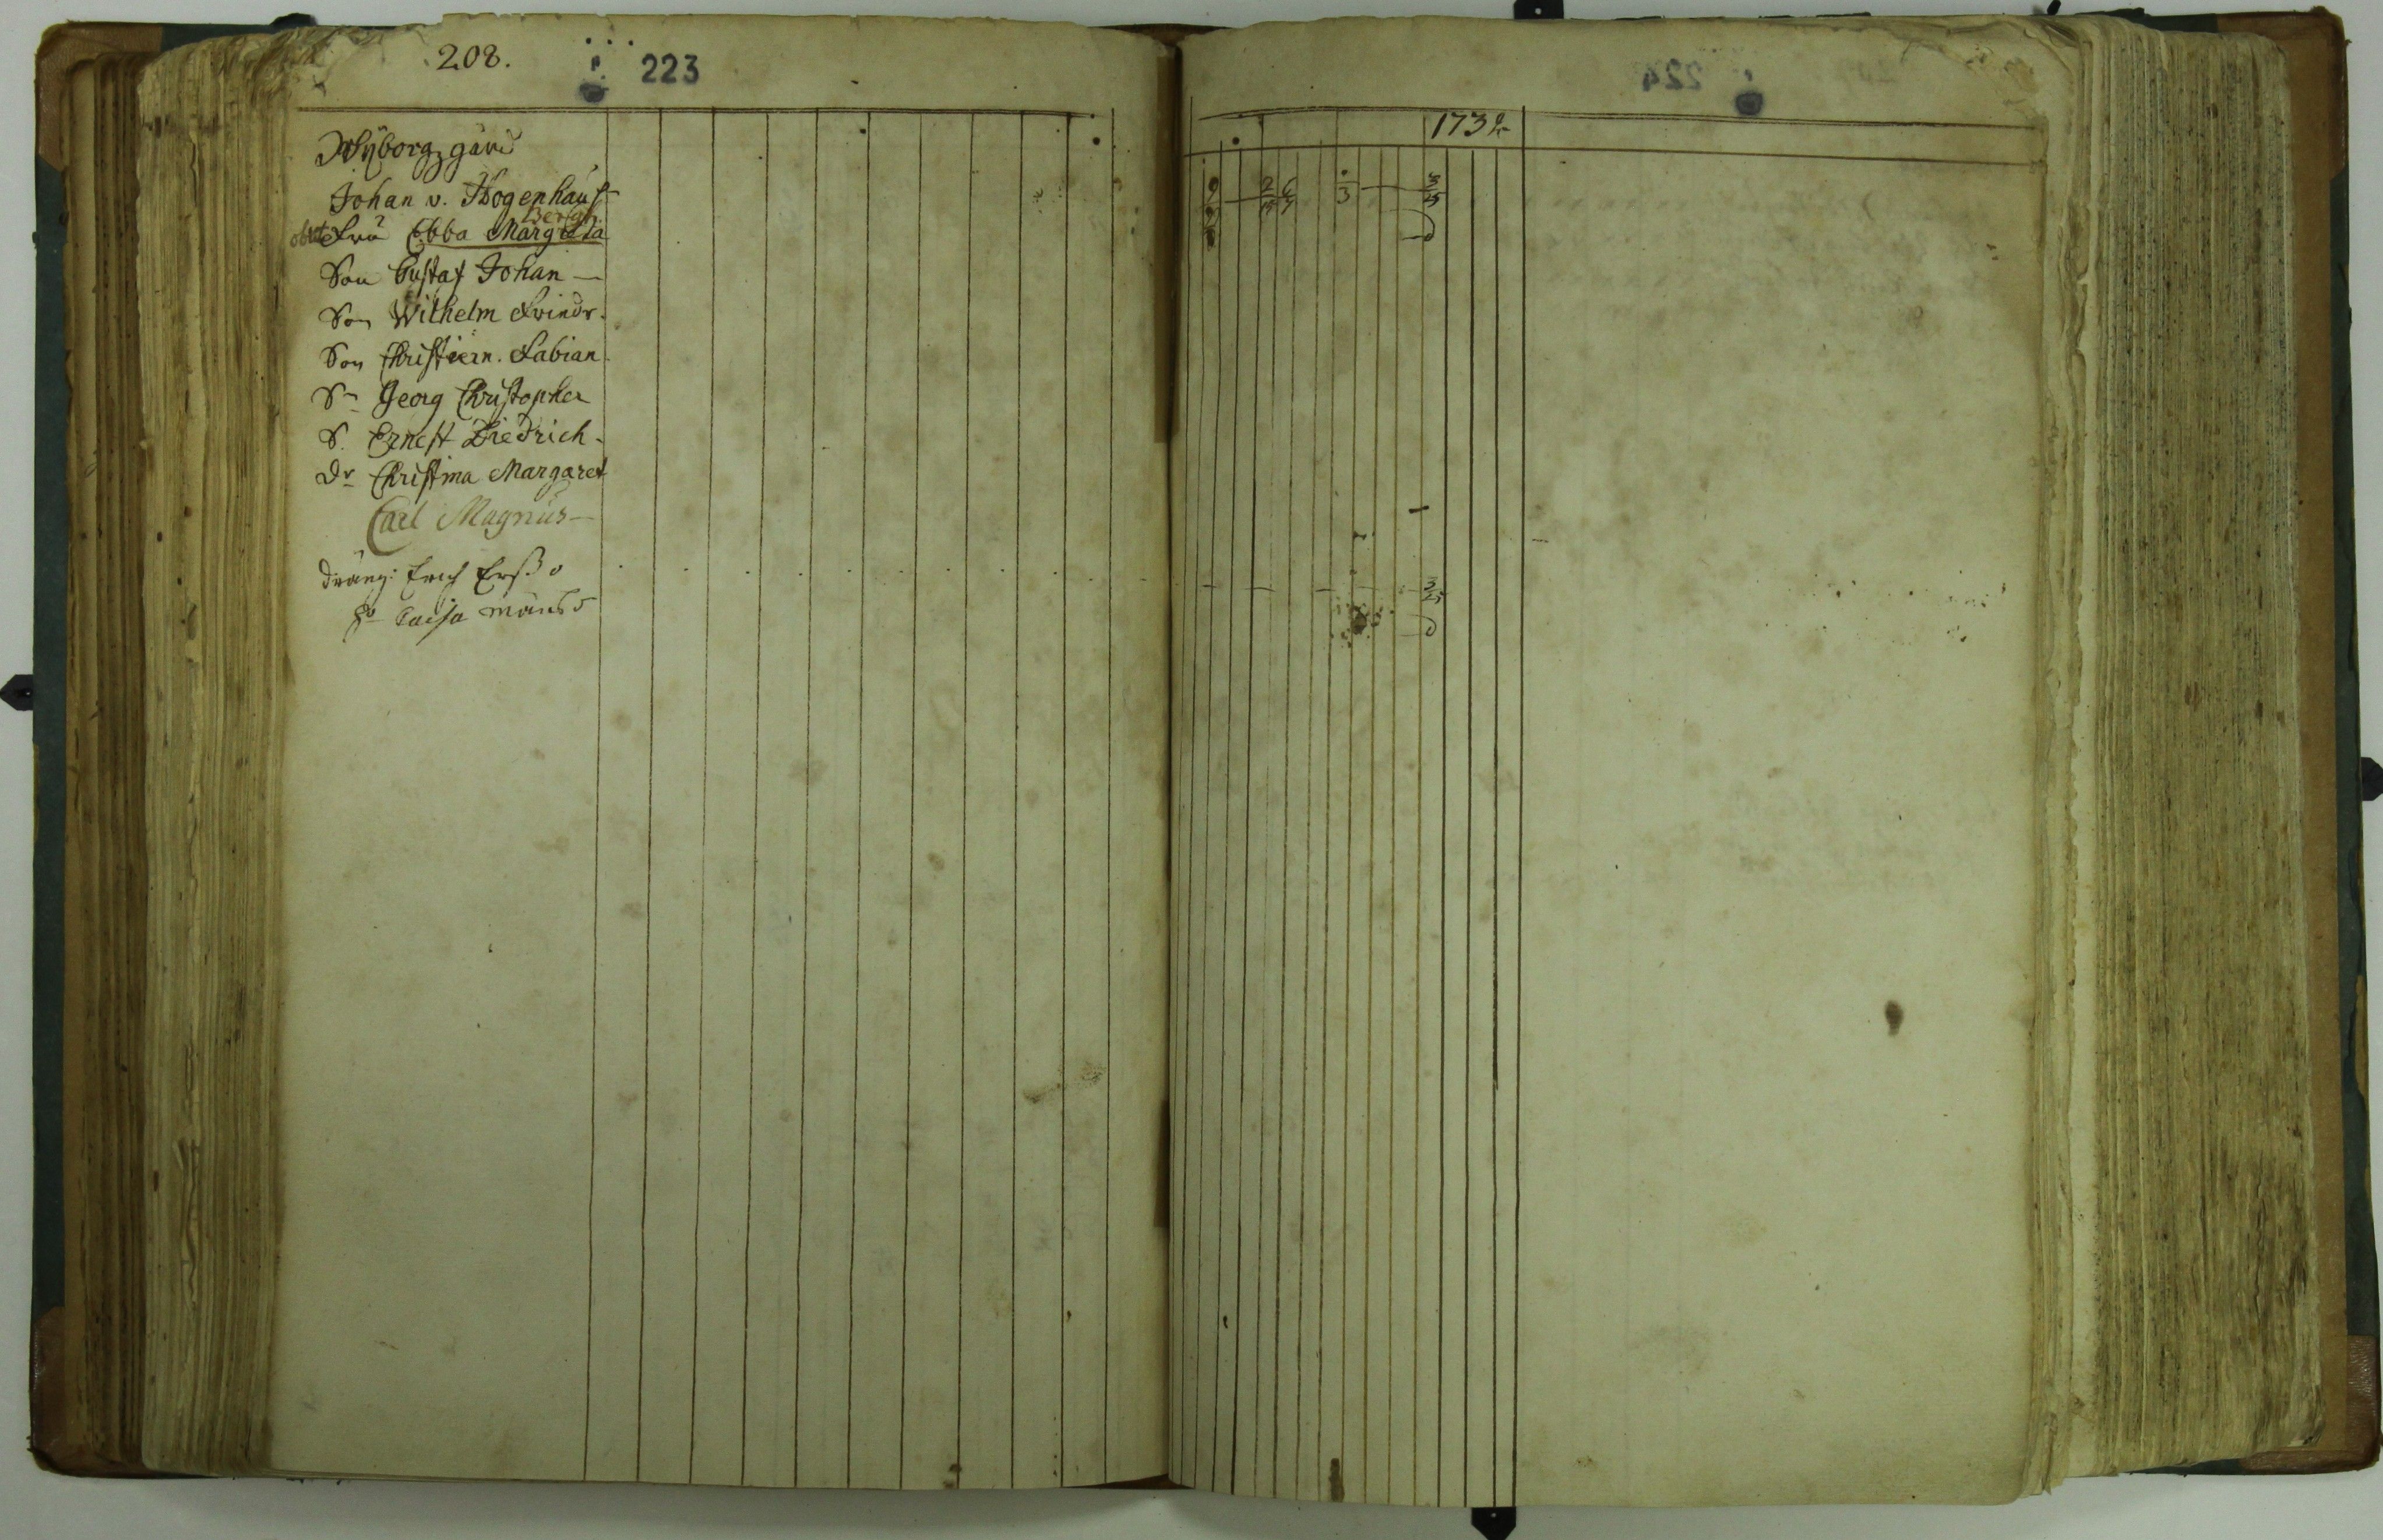 208. 223
Wÿborg gård
Johan v. Hogenhaus
Bergh.
obiit Fru Ebba Margreta
Son Gustaf Johan —
Son Wilhelm Friedr.
Son Christiern. Fabian
Sn Georg Christopher
S. Ernest Diedrich.
Dr Christina Margaret
Carl Magnus —
dräng: Erich Erss. o
Po Caisa Månsd
224
173
9 2/19 6/7 3 3/25
3/25